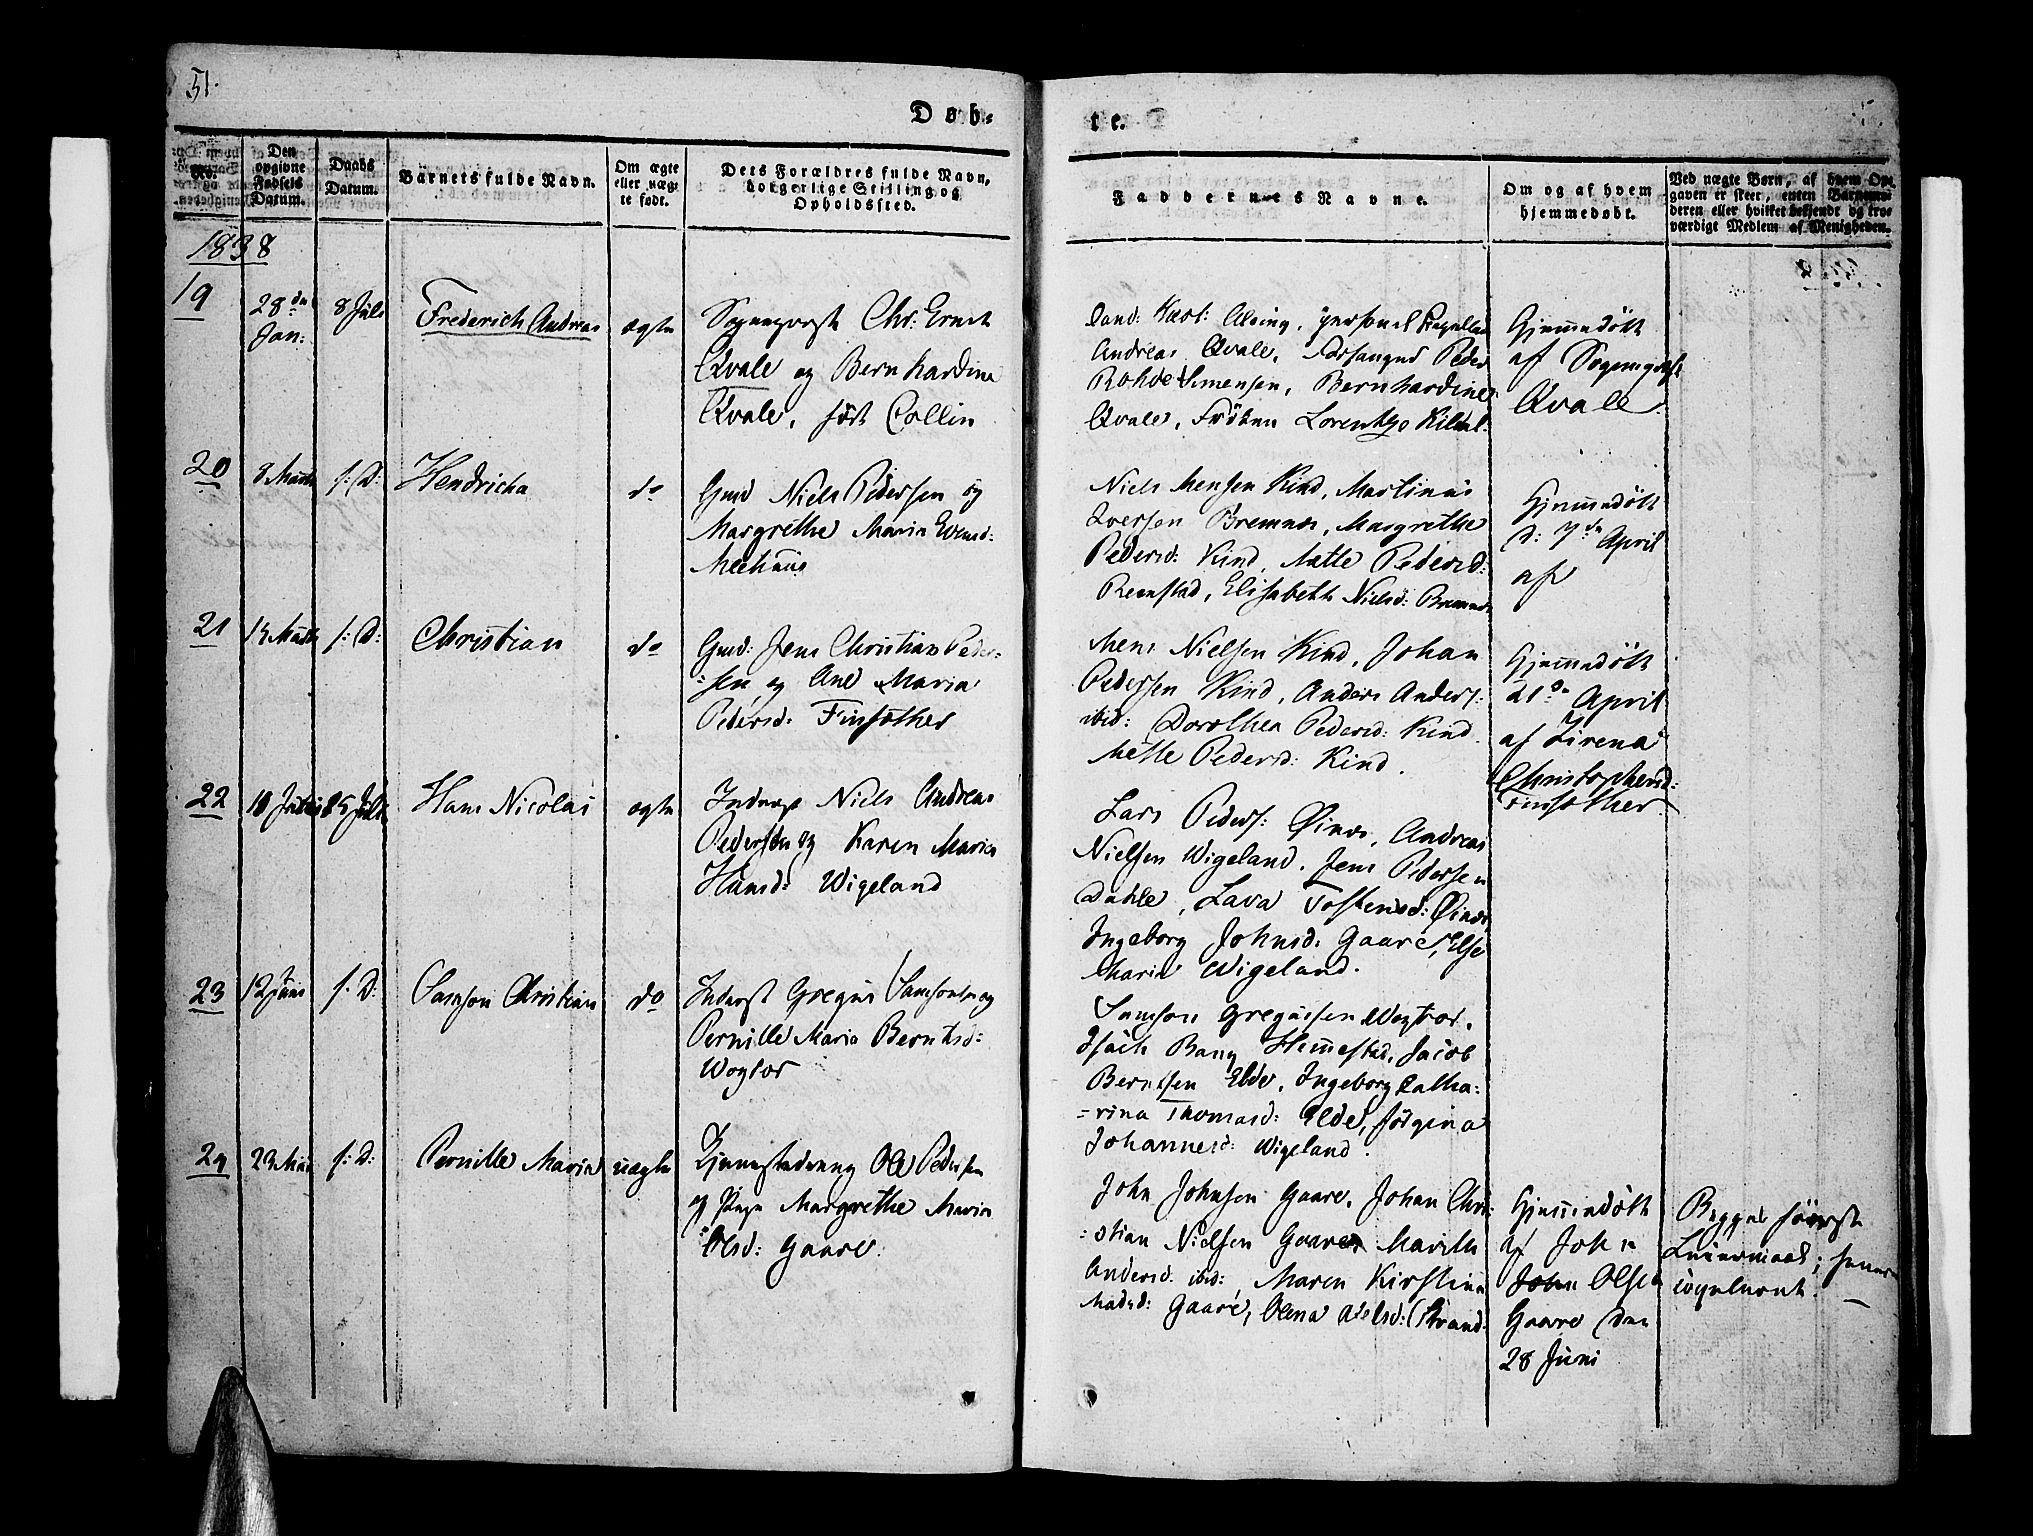 51.
Døb-
te.
No.
Den
opgivne
Fødsels
Datum.
Daabs
Datum.
Barnets fulde Navn.
Om ægte
eller uæg-
te født.
Dets Forældres fulde Navn,
borgerlige Stilling og
Opholdssted.
Faddernes Navne.
Om og af hvem
hjemmedøbt.
Ved uægte Børn, af hvem Op-
gaven er skeet, enten Barnemo-
deren eller hvilket bekjendt og tro-
værdigt Medlem af Menigheden.
1838
19
28de
Jan:
8 Juli
Frederich Andreas
ægte
Sogneprest Chr: Ernst
Qvale og Bernhardine
Qvale, født Collin
Andreas Qvale, Peder
Rohde Simensen, Bernhardine
Qvale, Frøken Lorentze
Hjemmedøbt
af Sogneprest
Qvale.
20
8 Marts
s: D:
Hendricha
do
Gmd Niels Pedersen og
Margrethe Maria Evensd:
Meehuus
Niels Mensen Kind, Martinus
Iversen Bremnæs, Margrethe
Pedersd: Kind, Mette Pedersd:
Reenstad, Elisabeth Nielsd: Bremnæs
Hjemmedøbt
d: 7de April
af
21
Marts
s: D:
Christian
do
Gmd: Jens Christian Peder-
-sen og Ane Maria
Pedersd: Finsæther
Mens Nielsen Kind, Johan
Pedersen Kind, Anders Anders:
ibid: Dorothea Pedersd: Kind
Mette Pedersd: Kind.
Hjemmedøbt
21de April
af Zirena
Christophersd:
Finsæther.
22
10 Juli
25 Juli
Hans Nicolai
ægte
Inderst Niels Andreas
Pedersen og Karen Maria
Hansd: Wigeland
Lars Peders: Øinæs, Andreas
Nielsen Wigeland, Jens Pedersen
Dahle, Lava Tostensd: Øinæs,
Ingeborg Johnsd: Gaare, Else
Maria Wigeland.
23
12 Juni
s: D:
Samson Christian
do
Inderst Gregus Samsonsen og
Pernille Maria Berntsd:
Wogtor
Samson Gregussen Wogtor,
Isach Bang Hemmestad, Jacob
Berntsen Elde, Ingeborg Catha-
-rina Thomasd: Elde, Jørgina
Johannesd: Wigeland.
24
23 Mai
s: D:
Pernille Maria
uægte
Ole Pedersen
og Pige Margrethe Maria
Olsd: Gaare.
John Johnsen Gaare, Johan Chri-
-stian Nielsen Gaare, Marith
Andersd: ibid: Maren Kirstine
Madsd: Gaare, Olena Strand.
Hjemmedøbt
af John
John Olsen
Gaare den
28 Juni
Begges første
Leiermaal;